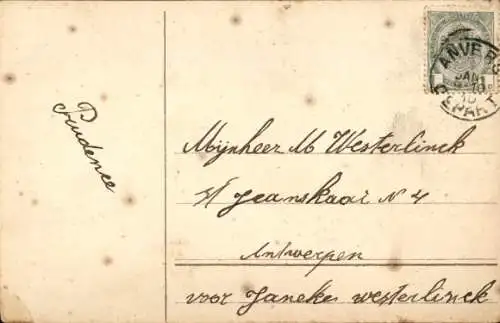 ANVERS
JAN
10
DEPART
1
Prudence
Mijnheer M Westerlinck
St Jeanskaai N 4
Antwerpen
voor Janeke Westerlinck